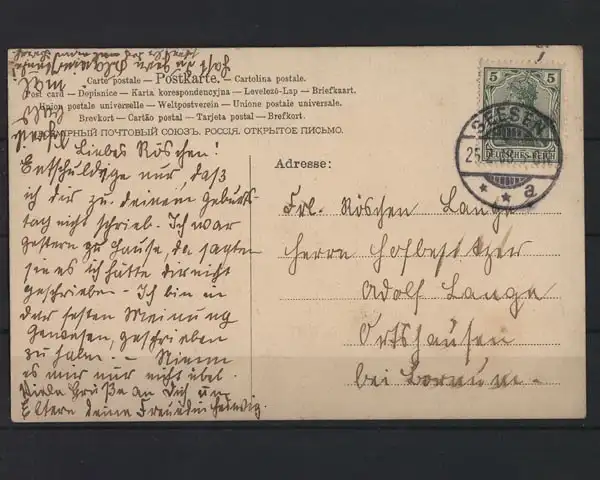 Carte postale — Postkarte. — Cartolina postale.
Post card — Dopisnice — Karta korespondencyjna — Levelező-Lap — Briefkaart.
Union postale universelle — Weltpostverein — Unione postale universale.
Brevkort — Cartão postal — Tarjeta postal — Brefkort.
ВСЕМІРНЫЙ ПОЧТОВЫЙ СОЮЗЪ, РОССІЯ. ОТКРЫТОЕ ПИСЬМО.
5 5
DEUTSCHES REICH
SEESEN
25
a
Liebes Röschen!
Entschuldige nur, daß
ich dir zu deinem Geburts-
tag nicht schrieb. Ich war
gestern zu Hause, da sagten
sie es ich hätte dir nicht
geschrieben. Ich bin in
der festen Meinung
gewesen, geschrieben
zu haben. — Nimm
es mir nur nicht übel.
Viele Grüße an Dich und
Eltern deine Freundin Hedwig.
Adresse:
Frl. Röschen Lange
Herrn Hofbesitzer
Adolf Lange
Ortshausen
bei Bornum.